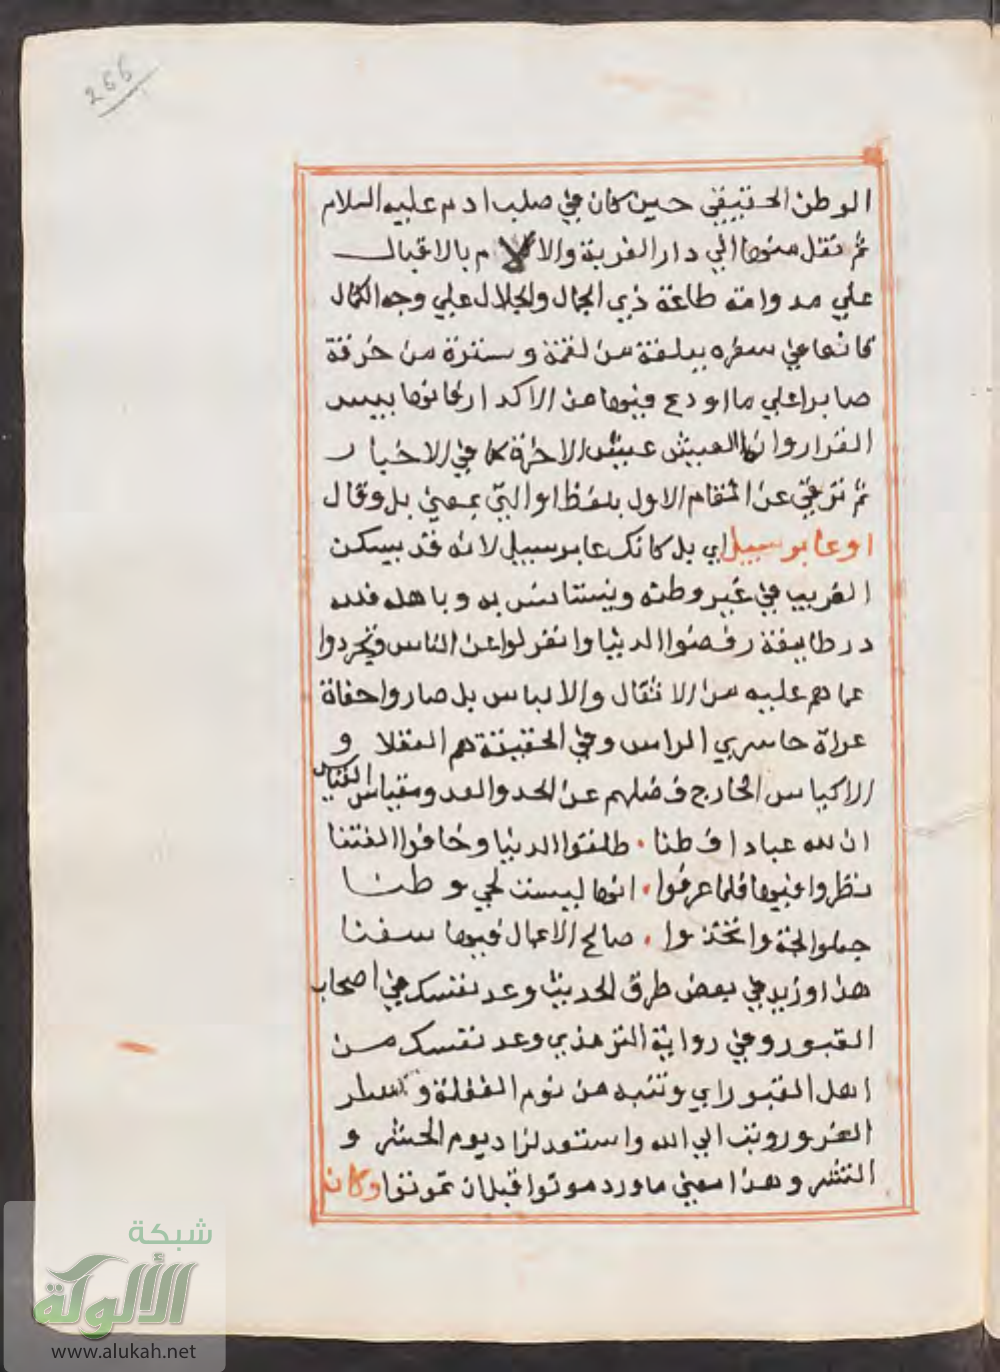 266
الوطن الحقيقي حين كان في صلب ادم عليه السلام
ثم نقل منها الي دار الغربة والالام بالاقبال
علي مداومة طاعة ذي الجمال والجلال علي وجه الكمال
قانعا في سفره ببلغة من لقمة وسترة من خرقة
صابرا علي ما اودع فيها من الاكدار فانها بيس
القرار وان العيش عيش الاخرة كما في الاخبار
ثم ترقي عن المقام الاول بلفظ او التي بمعني بل وقال
او عابر سبيل اي بل كانك عابر سبيل لانه قد يسكن
الغريب في غير وطنه ويستانس به وباهله فلله
در طايفة رفضوا الدنيا وانعزلوا عن الناس وتجردوا
عما هم عليه من الاثقال والالباس بل صاروا حفاة
عراة حاسري الراس وفي الحقيقة هم العقلا و
الاكياس الخارج فضلهم عن الحد والعد ومقياس القياس
ان لله عبادا فطنا . طلقوا الدنيا وخافوا الفتنا
نظروا فيها فلما عرفوا . انها ليست لحي وطنا
جعلوا لجة واتخذوا . صالح الاعمال فيها سفنا
هذا وزيد في بعض طرق الحديث وعد نفسك في اصحاب
القبور وفي رواية الترمذي وعد نفسك من
اهل القبور اي وتنبه من نوم الغفلة و
الغرور وتب الي الله واستعد لزاد يوم الحشر و
النشر وهذا معني ما ورد موتوا قبل ان تموتوا وكان
شبكة
الألوكة
www.alukah.net